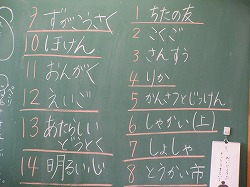 1 ちたの友
2 こくご
3 さんすう
4 りか
5 かんさつとじっけん
6 しゃかい(上)
7 しょしゃ
8 とうかい市
9 ずがこうさく
10 ほけん
11 おんがく
12 えいご
13 あたらしい
どうとく
14 明るい心